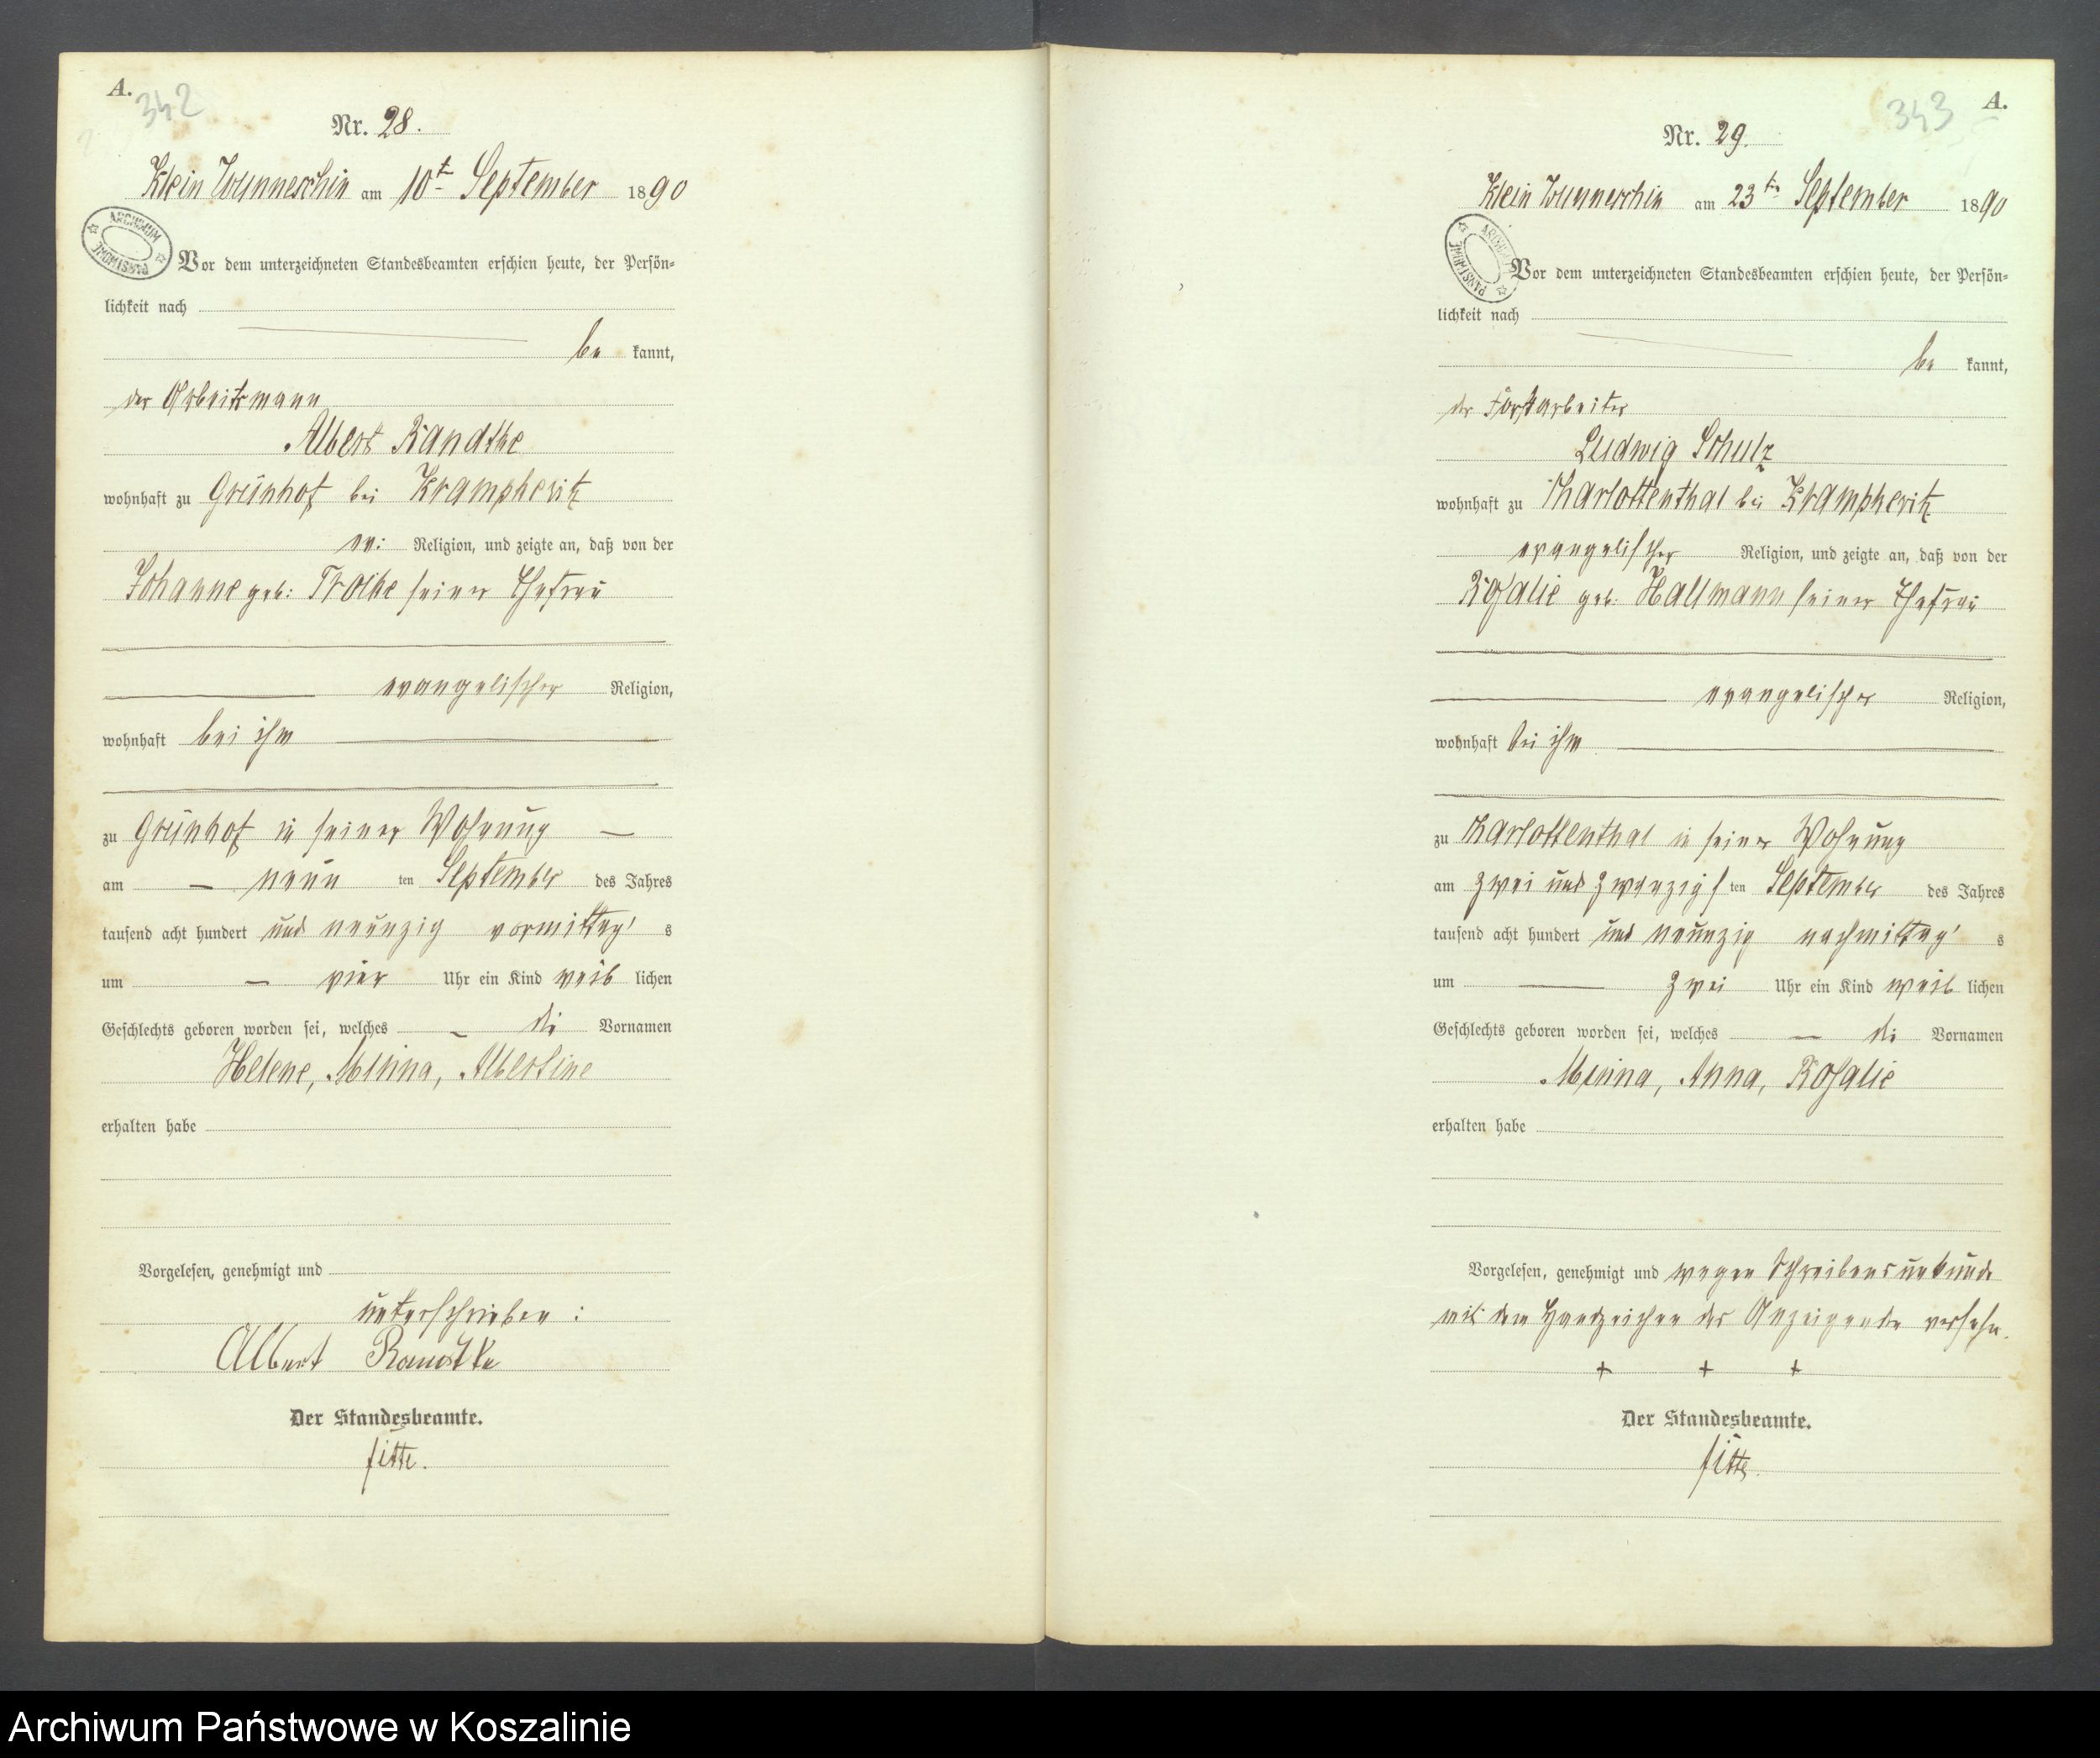 A.
342
Nr. 28.
Klein Wunneschin am 10t September 1890
ARCHIWUM PAŃSTWOWE
Vor dem unterzeichneten Standesbeamten erschien heute, der Persön-
lichkeit nach
be kannt,
der Arbeitsmann
Albert Randtke
wohnhaft zu Grünhof bei Krampkewitz
ev: Religion, und zeigte an, daß von der
Johanne geb: seiner Ehefrau
evangelischer Religion,
wohnhaft bei ihm
zu Grünhof in seiner Wohnung
am neun ten September des Jahres
tausend acht hundert und neunzig vormittag s
um vier Uhr ein Kind weib lichen
Geschlechts geboren worden sei, welches die Vornamen
Helene, Minna, Albertine
erhalten habe
Vorgelesen, genehmigt und
unterschrieben:
Albert Randtke
Der Standesbeamte.
Fitte.
A.
343
Nr. 29.
Klein Wunneschin am 23ten September 1890
ARCHIWUM PAŃSTWOWE
Vor dem unterzeichneten Standesbeamten erschien heute, der Persön-
lichkeit nach
be kannt,
der Forstarbeiter
Ludwig Schulz
wohnhaft zu Charlottenthal bei Krampkewitz
evangelischer Religion, und zeigte an, daß von der
Rosalie geb. Hallmann seiner Ehefrau
evangelischer Religion,
wohnhaft bei ihm
zu Charlottenthal in seiner Wohnung
am zwei und zwanzigs ten September des Jahres
tausend acht hundert und neunzig nachmittag s
um zwei Uhr ein Kind weib lichen
Geschlechts geboren worden sei, welches die Vornamen
Minna, Anna, Rosalie
erhalten habe
Vorgelesen, genehmigt und wegen Schreibensunkunde
mit dem Handzeichen des Anzeigende versehn.
+ + +
Der Standesbeamte.
Fitte.
Archiwum Państwowe w Koszalinie